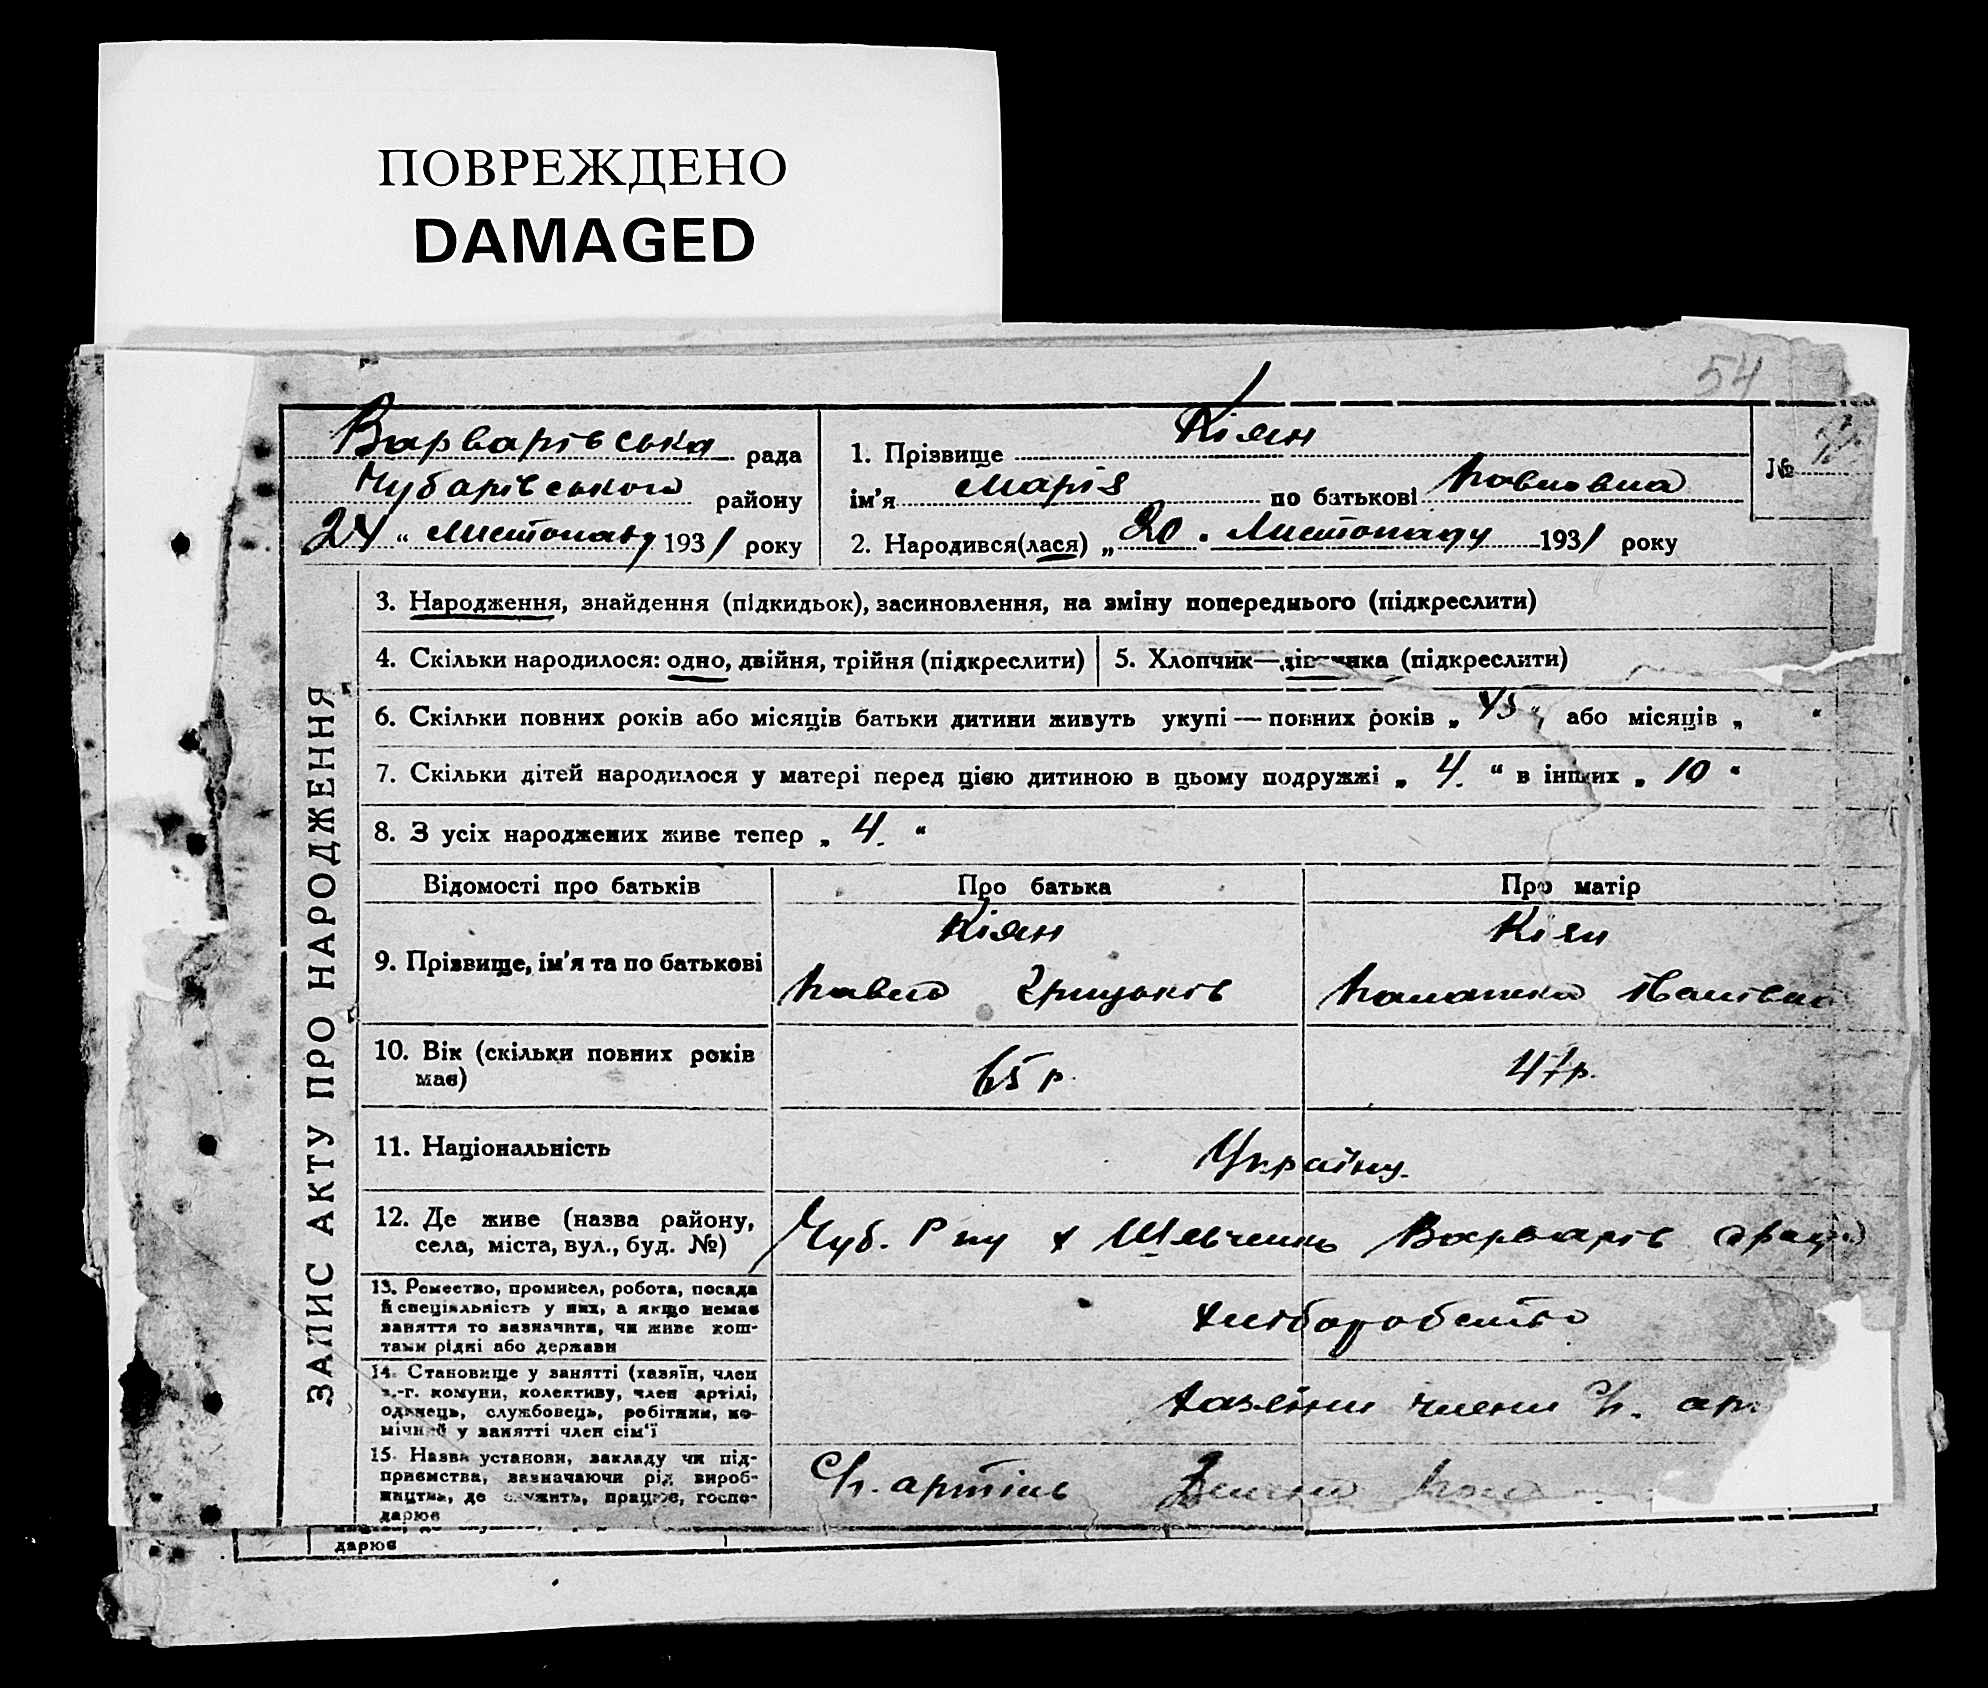 ПОВРЕЖДЕНО
DAMAGED
54
Варварівська рада
Чубарівського району
24 “ Листопаду 1931 року
1. Прізвище Кіян
ім’я Марія по батькові Павловна
2. Народився(лася) „ 20 . Листопаду 1931 року
№
ЗАПИС АКТУ ПРО НАРОДЖЕННЯ
3. Народження, знайдення (підкидьок), засиновлення, на зміну попереднього (підкреслити)
4. Скільки народилося: одно, двійня, трійня (підкреслити)
5. Хлопчик—дівчинка (підкреслити)
6. Скільки повних років або місяців батьки дитини живуть укупі — повних років „ “ або місяців „ “
7. Скільки дітей народилося у матері перед цією дитиною в цьому подружжі „ 4. “ в інших „ 10 “
8. З усіх народжених живе тепер „ 4. “
Відомості про батьків
Про батька
Про матір
9. Прізвище, ім’я та по батькові
Кіян
Павло Грицьків
Кіян
Палажка Іванівна
10. Вік (скільки повних років
має)
65 р.
47р.
11. Національність
Україну.
12. Де живе (назва району,
села, міста, вул., буд. №)
Чуб. Р ну х Шевченк Варварів
13. Ремество, промисел, робота, посада
й спеціяльність у них, а якщо немає
заняття то зазначити, чи живе кош-
тами рідні або держави
хліборобство
14. Становище у занятті (хазяїн, член
с.-г. комуни, колективу, член артілі,
одинець, службовець, робітник, по-
мічний у занятті член сім‘ї
хазяїни члени
15. Назва установи, закладу чи під-
приємства, зазначаючи рід вироб-
ництва, де служить, працює, госпо-
дарює
артіль
дарює